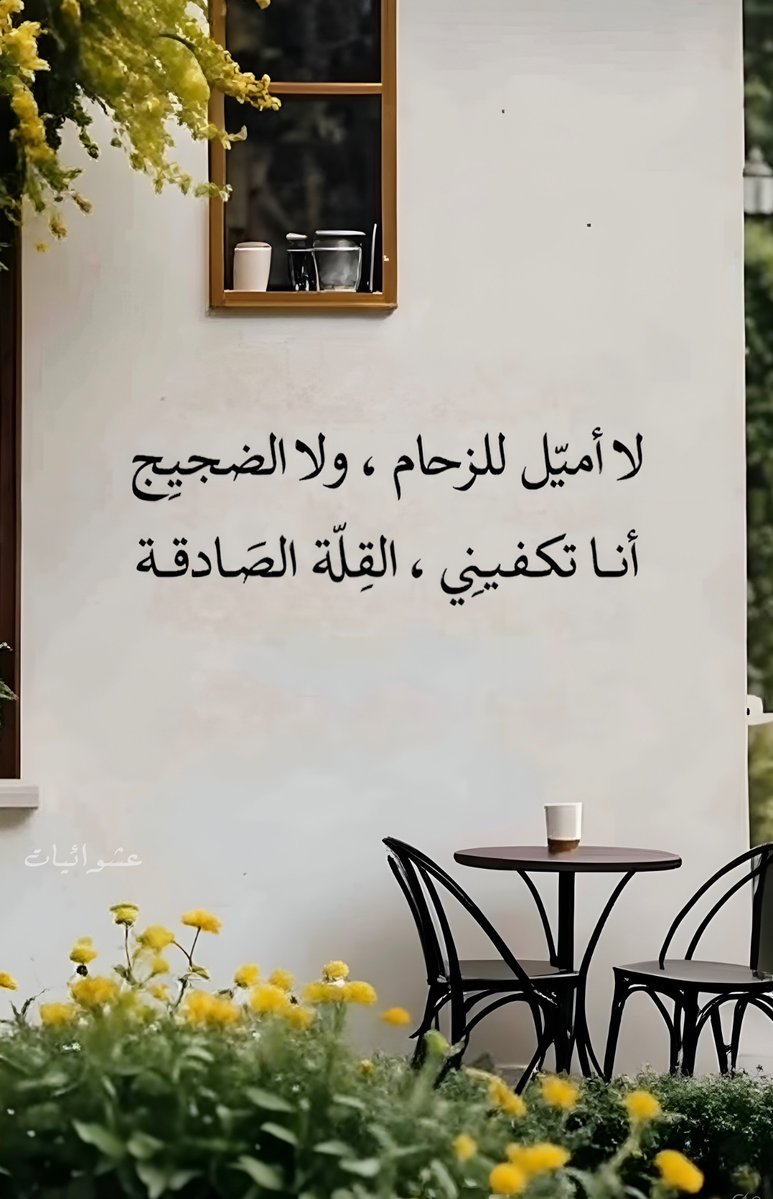 لا أميّل للزحام ، ولا الضجيِج
أنـا تكـفيـنِي ، القِلّة الصَـادقـة
عشوائيات